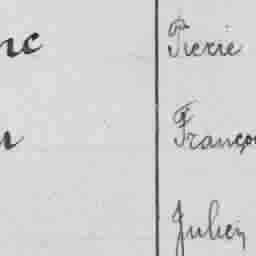 nc Pierre
Franço
Julien